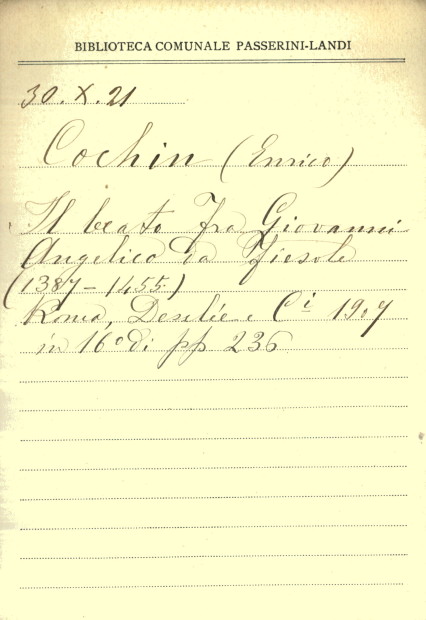 BIBLIOTECA COMUNALE PASSERINI-LANDI
30.X.21
Cochin (Enrico)
Il beato Fra Giovanni
Angelico da Fiesole
(1387-1455.)
Roma, Desclée e Ci 1907
in 16º di pp 236